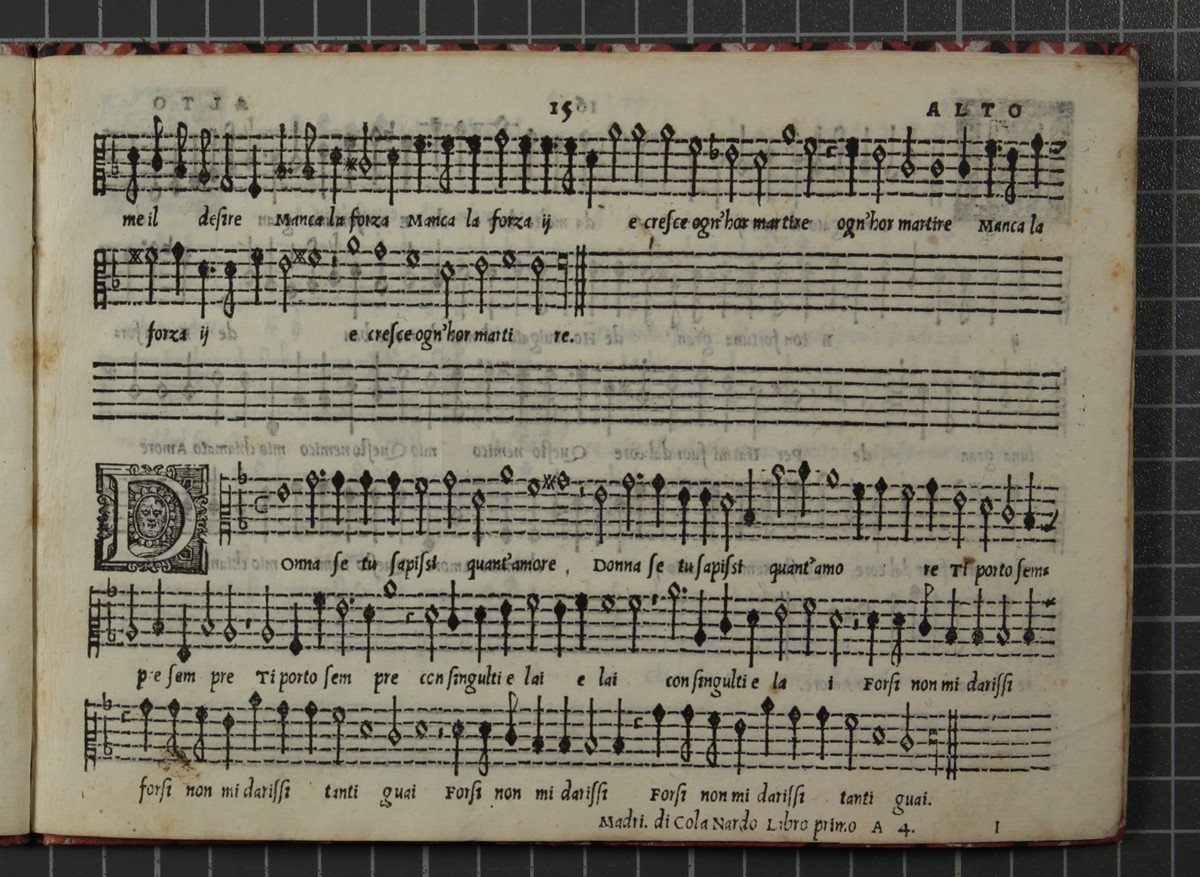 15 ALTO
me il desire Manca la forza Manca la forza ij e cresce ogn'hor martire ogn'hor martire Manca la
forza ij e cresce ogn'hor marti re.
D
Onna se tu sapissi quant'amore, Donna se tu sapissi quant'amo re Ti porto sem=
pre sem pre Ti porto sem pre con singulti e lai e lai con singulti e la i Forsi non mi darissi
forsi non mi darissi tanti guai Forsi non mi darissi Forsi non mi darissi tanti guai.
Madri. di Cola Nardo Libro primo A 4. I